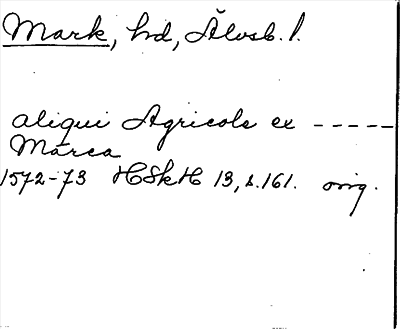 Mark, hd, Älvsb. l.
aliqui Agricole ex -----
Marca
1572-73 HSkH 13, s.161. orig.